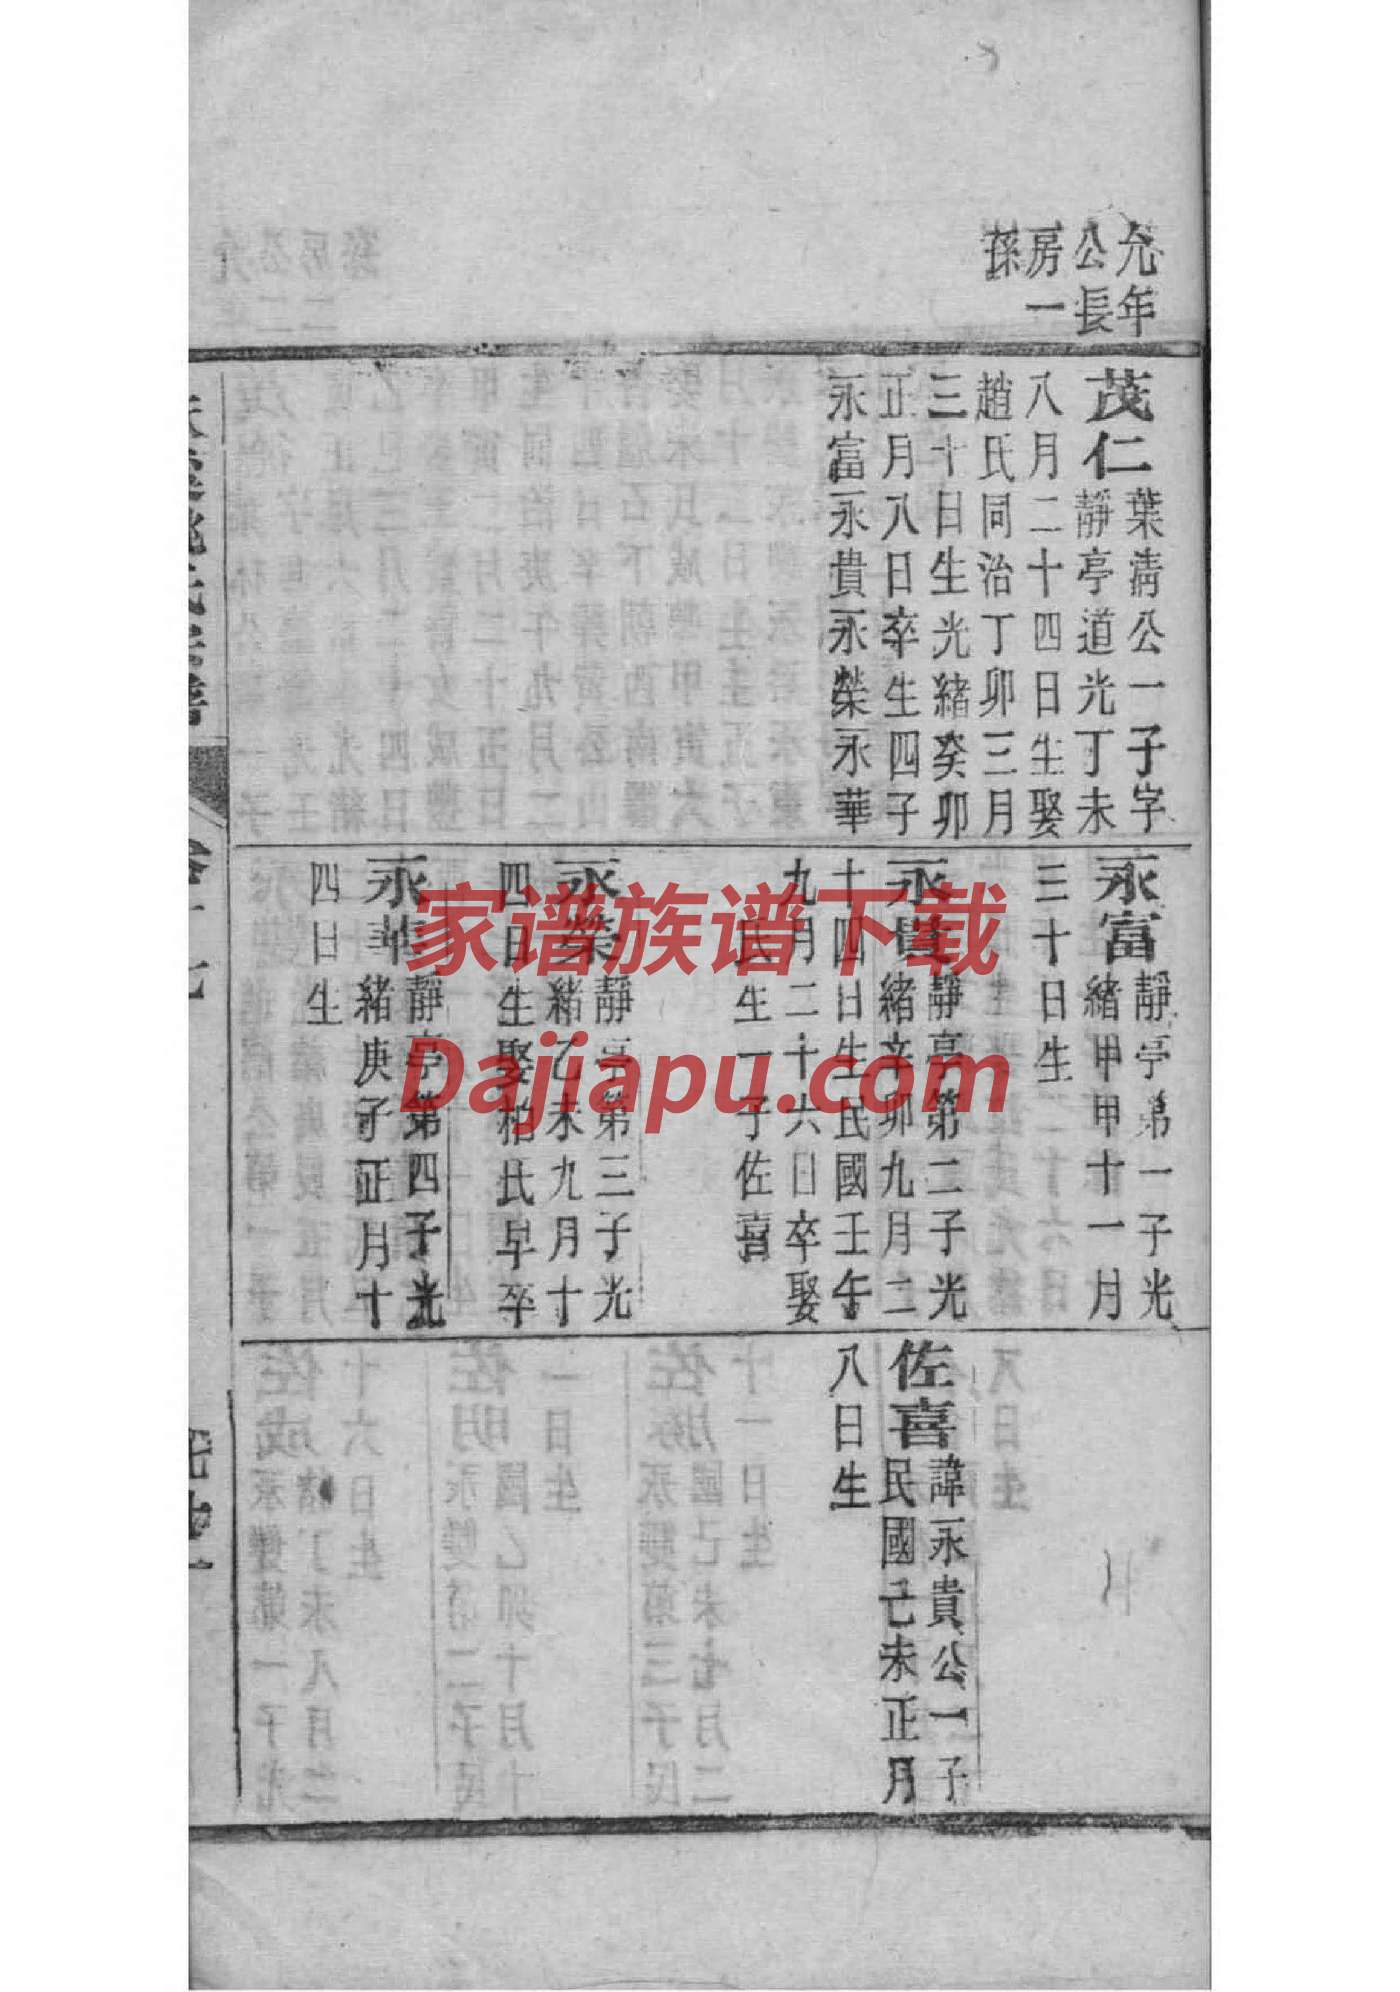 允年
公長
房一
孫
茂仁
葉淸公一子字
靜亭道光丁未
八月二十四日生娶
趙氏同治丁卯三月
三十日生光緒癸卯
正月八日卒生四子
永富永貴永榮永華
永富
靜亭第一子光
緒甲甲十一月
三十日生
永貴
靜亭第二子光
緒辛卯九月二
十四日生民國壬午
九月二十六日卒娶
氏生一子佐喜
永榮
靜亭第三子光
緒乙未九月十
四日生娶柏氏早卒
永華
靜亭第四子光
緒庚子正月十
四日生
佐喜
諱永貴公一子
民國己未正月
八日生
家谱族谱下载
Dajiapu.com